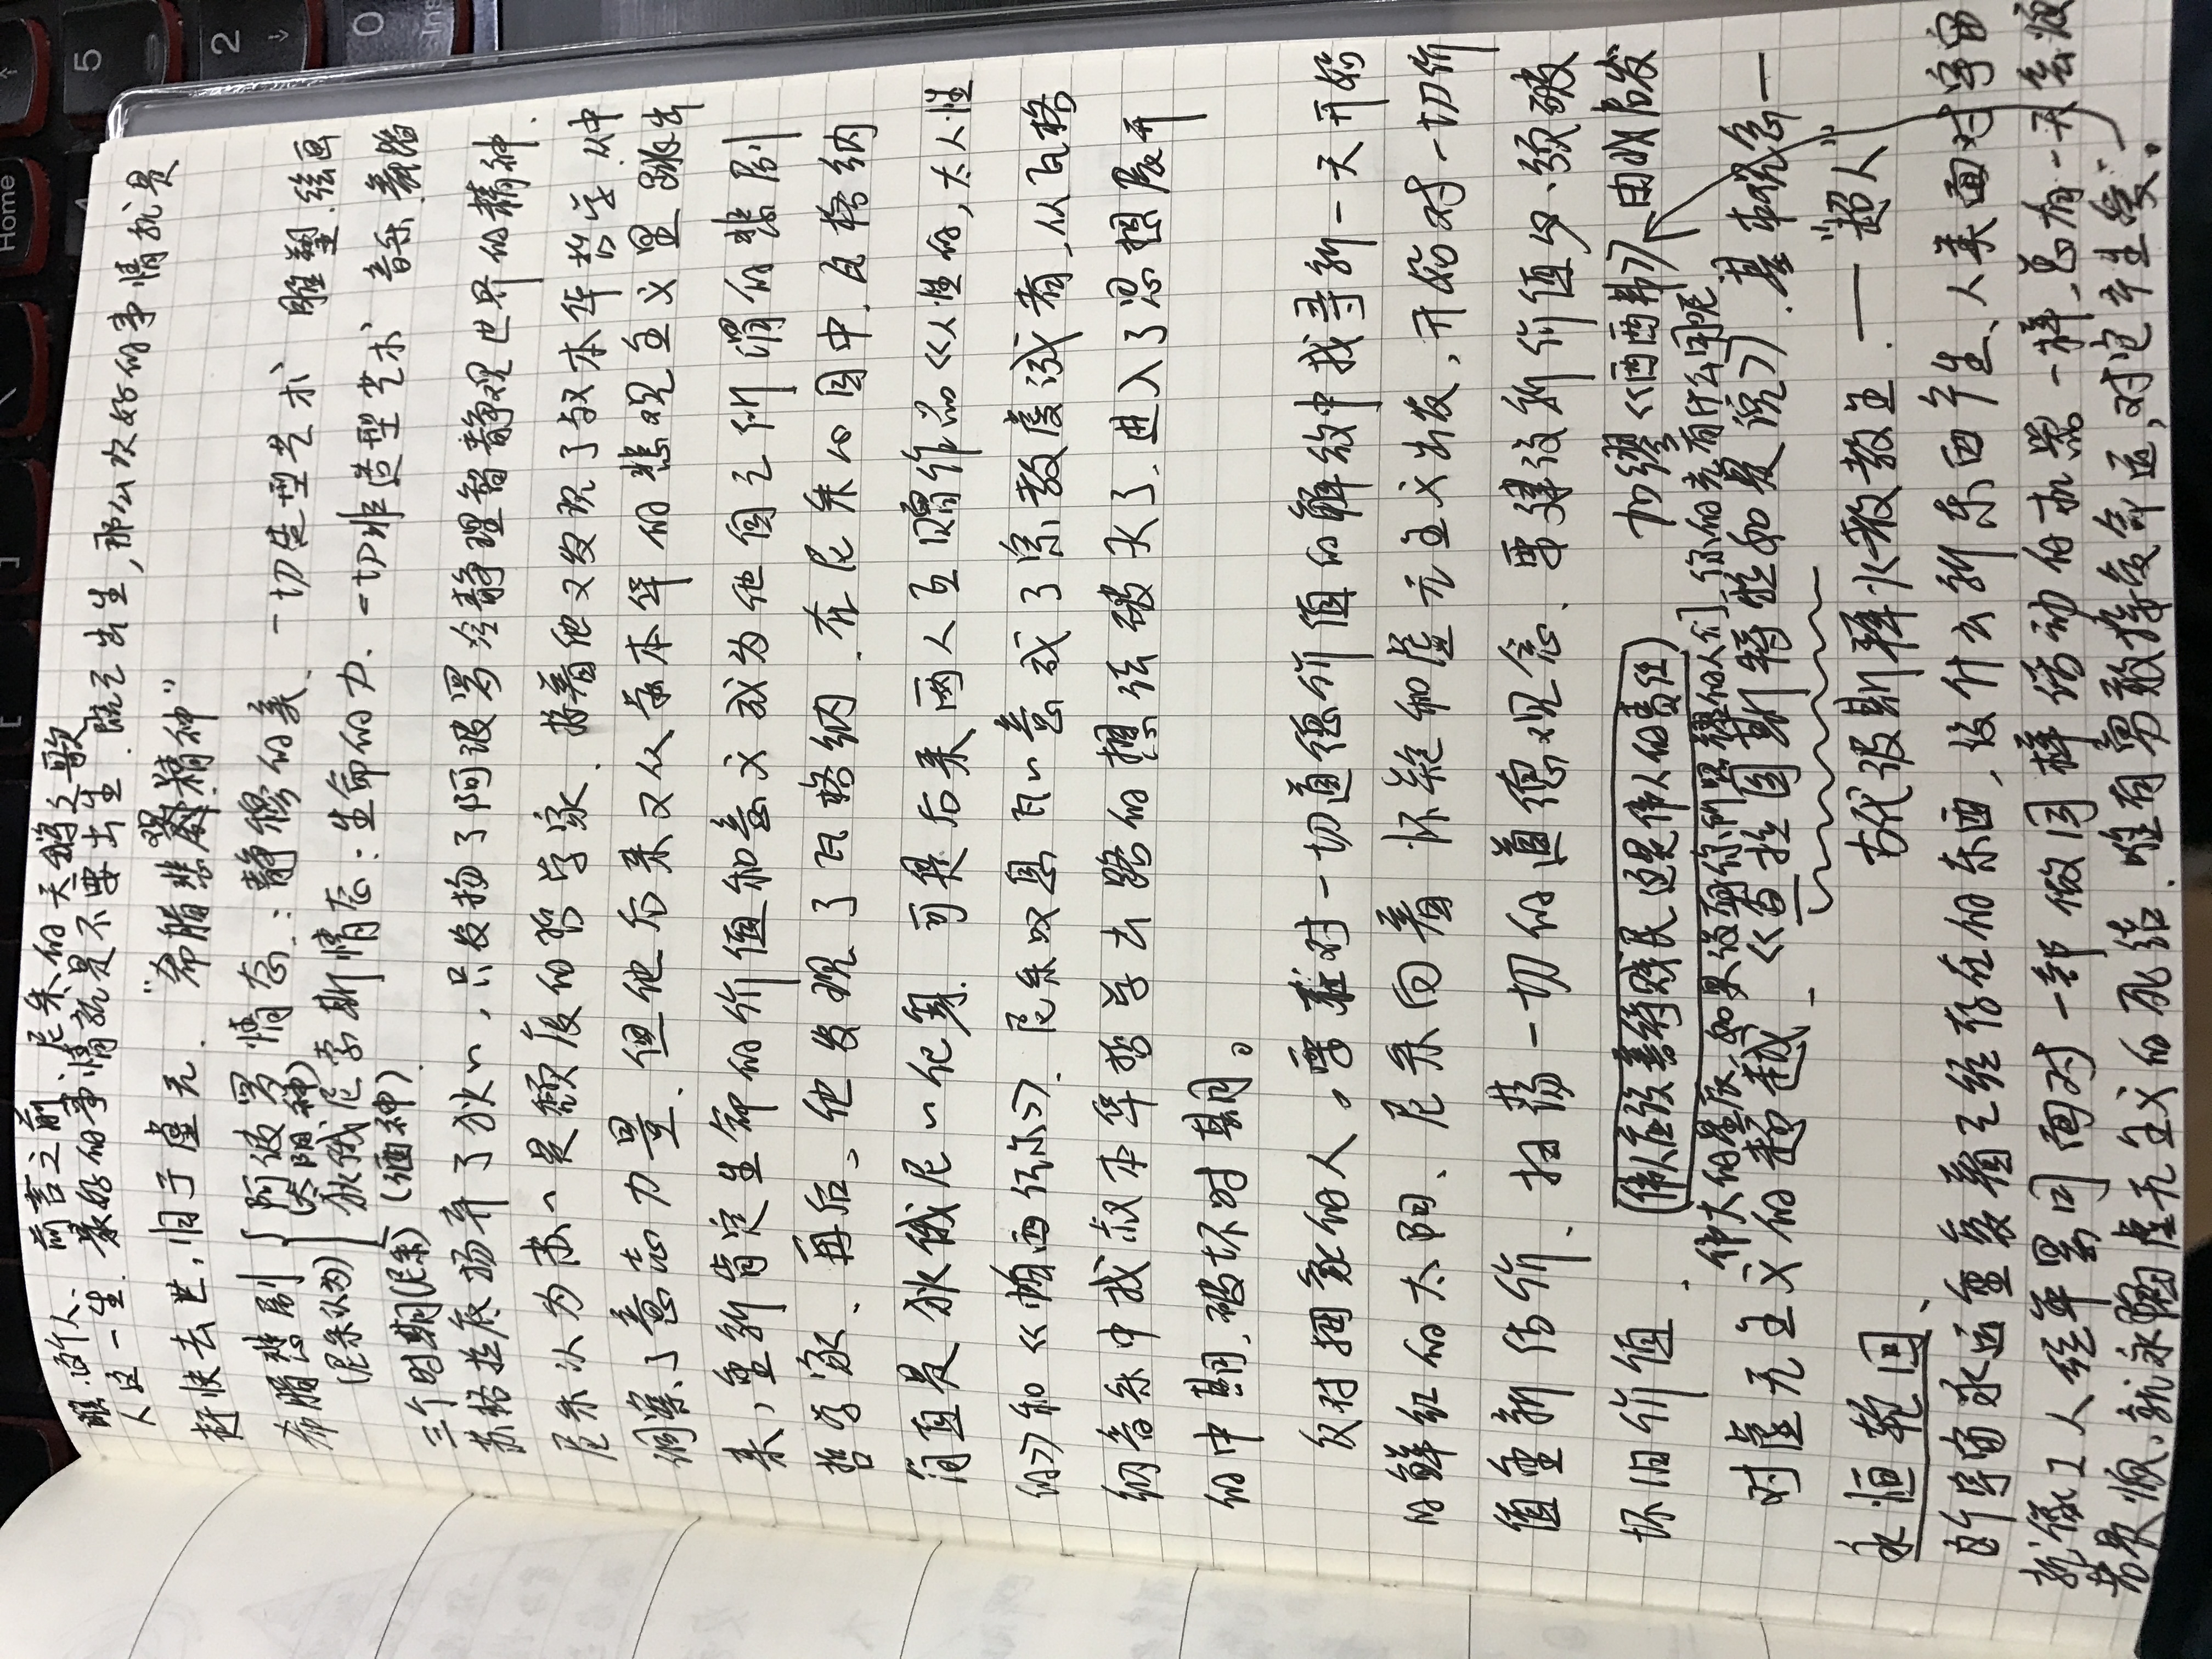 瞧,这个人、前言之前、尼采的天鹅之歌
人这一生.最好的事情就是不要出生.既已出生,那么次好的事情就是
赶快去世,归于虚无.“希腊悲观精神”
希腊悲剧 阿波罗情态:静穆的美.一切造型艺术 雕塑.绘画
(尼采认为) (太阳神)
狄俄尼索斯情态:生命的力.一切非造型艺术 音乐.舞蹈
三个时期(尼采) (酒神).
苏格拉底扬弃了狄〃,只发扬了阿波罗冷静理智静观世界的精神.
尼采认为苏〃是颓废的哲学家.接着他又发现了叔本华哲学.从中
洞察了意志力量.但他后来又从叔本华的悲观主义里跳出
来,重新肯定生命的价值和意义成为他自己所谓的悲剧
哲学家、再后,他发现了瓦格纳.在尼采心目中.瓦格纳
简直是狄俄尼〃化身.可是后来两人互赠作品《人性的,太人性
的》和《帕西法尔》.尼采叹息瓦〃竟成了宗教虔诚者,从瓦格
纳音乐中找叔本华哲学出路的想法破灭了.进入了思想展开
的中期,破坏时期。
反对捆象的人。要在对一切道德价值的解放中找寻新一天开始
的鲜红的太阳、尼采向着怀疑和虚无主义出发,开始对一切价
值重新估价、扫荡一切的道德观念、要建设新价值必须破
坏旧价值. (伟人应该善待贱民 这是伟人的责任) 加缪《西西弗》由此启发
伟大的星辰,如果没有你所照耀的人们,你的光有什么用呢
对虚无主义的超越.《查拉图斯特拉如是说》.基本观念一
永恒轮回、 古代波斯拜火教教主.——“超人”
这个宇宙永远重复着已经存在的东西,没什么新东西产生、人类面对宇宙
就像工人经年累月面对一部做同样活动的机器一样,总有一天会烦
若是烦,就永陷虚无主义的死结.唯有勇敢接受命运,对它产生爱。